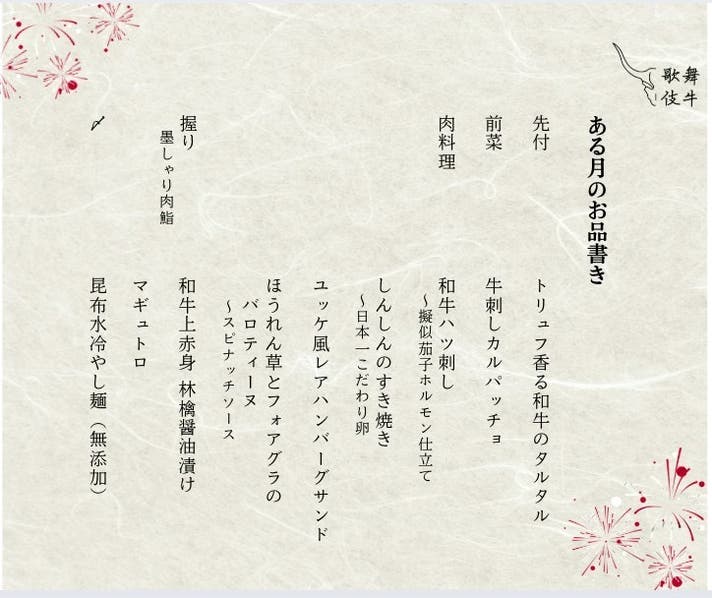 歌舞
伎牛
ある月のお品書き
先付
トリュフ香る和牛のタルタル
前菜
牛刺しカルパッチョ
肉料理
和牛ハツ刺し
〜擬似茄子ホルモン仕立て
しんしんのすき焼き
〜日本一こだわり卵
ユッケ風レアハンバーグサンド
ほうれん草とフォアグラの
バロティーヌ
〜スピナッチソース
握り
墨しゃり肉鮨
和牛上赤身 林檎醤油漬け
マギュトロ
〆
昆布水冷やし麺(無添加)